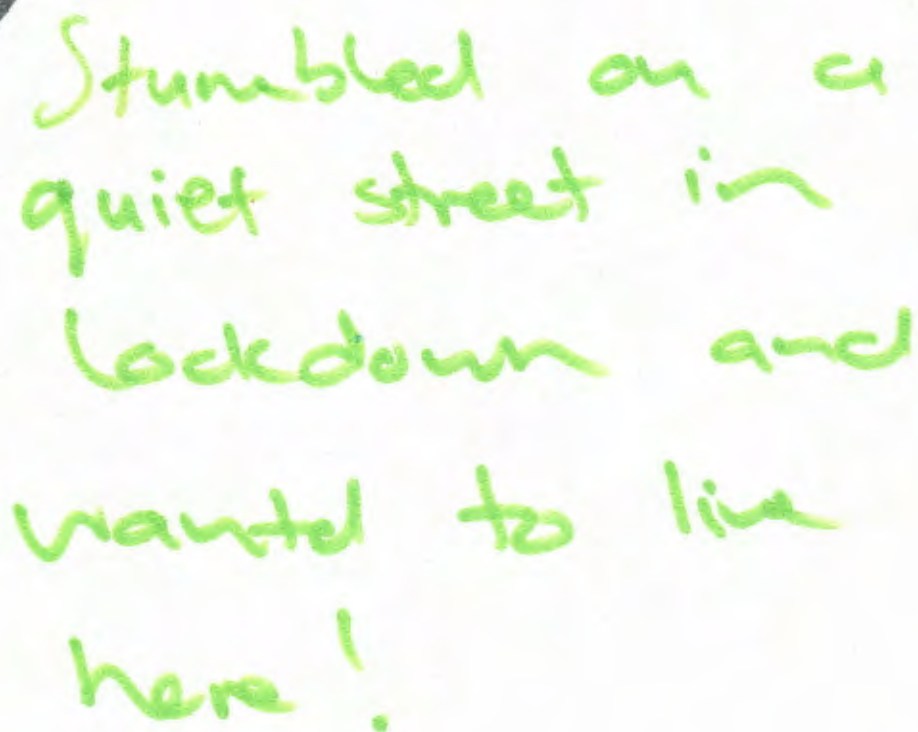 Stumbled on a
quiet street in
lockdown and
wantd to live
here!